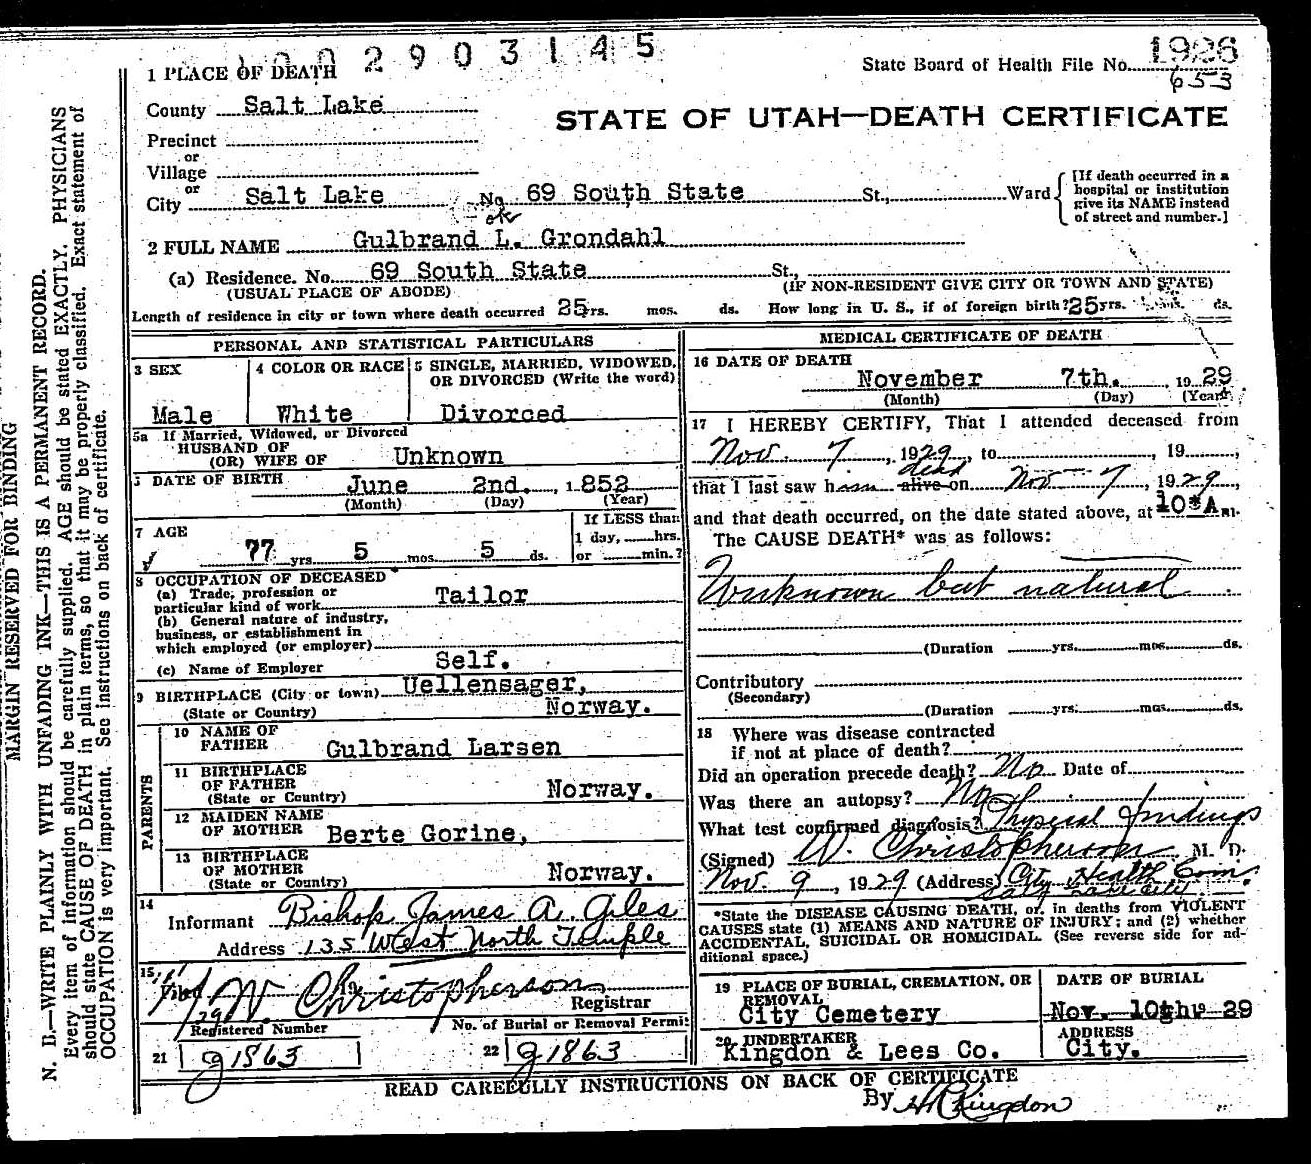 0 0 2 9 0 3 1 4 5
1926
State Board of Health File No. 653
1 PLACE OF DEATH
County Salt Lake
STATE OF UTAH—DEATH CERTIFICATE
Precinct
or
Village
or
City Salt Lake No. 69 South State St., Ward
[If death occurred in a
hospital or institution
give its NAME instead
of street and number.]
2 FULL NAME Gulbrand L. Grondahl
(a) Residence. No. 69 South State St.,
(USUAL PLACE OF ABODE) (IF NON-RESIDENT GIVE CITY OR TOWN AND STATE)
Length of residence in city or town where death occurred 25 yrs. mos. ds. How long in U. S., if of foreign birth? 25 yrs. ds.
PERSONAL AND STATISTICAL PARTICULARS
3 SEX
Male
4 COLOR OR RACE
White
5 SINGLE, MARRIED, WIDOWED,
OR DIVORCED (Write the word)
Divorced
5a If Married, Widowed, or Divorced
HUSBAND OF
(OR) WIFE OF Unknown
DATE OF BIRTH
June 2nd. 1852
(Month) (Day) (Year)
7 AGE
77 yrs 5 mos. 5 ds.
If LESS than
1 day, hrs.
or min.?
8 OCCUPATION OF DECEASED
(a) Trade, profession or
particular kind of work Tailor
(b) General nature of industry,
business, or establishment in
which employed (or employer)
(c) Name of Employer Self.
9 BIRTHPLACE (City or town) Uellensager,
(State or Country) Norway.
PARENTS
10 NAME OF
FATHER Gulbrand Larsen
11 BIRTHPLACE
OF FATHER
(State or Country) Norway.
12 MAIDEN NAME
OF MOTHER Berte Gorine,
13 BIRTHPLACE
OF MOTHER
(State or Country) Norway.
14
Informant Bishop James A. Giles
Address 135 West North Temple
15
Filed 29 W. Christopherson
Registrar
Registered Number
21 g1863
No. of Burial or Removal Permit
22 g1863
MEDICAL CERTIFICATE OF DEATH
16 DATE OF DEATH
November 7th. , 1929
(Month) (Day) (Year)
17 I HEREBY CERTIFY, That I attended deceased from
Nov. 7, 1929, to , 19
dead
that I last saw him alive on Nov 7, 1929,
and that death occurred, on the date stated above, at 10 A m.
The CAUSE DEATH* was as follows:
Unknown but natural
(Duration yrs. mos. ds.
Contributory
(Secondary)
(Duration yrs. mos. ds.
18 Where was disease contracted
if not at place of death?
Did an operation precede death? No Date of
Was there an autopsy? No
What test confirmed diagnosis? Physical findings
(Signed) W. Christopherson M. D.
Nov. 9, 1929 (Address) City Health Com.
Salt Lake City
*State the DISEASE CAUSING DEATH, or, in deaths from VIOLENT
CAUSES state (1) MEANS AND NATURE OF INJURY; and (2) whether
ACCIDENTAL, SUICIDAL OR HOMICIDAL. (See reverse side for ad-
ditional space.)
19 PLACE OF BURIAL, CREMATION, OR
REMOVAL
City Cemetery
DATE OF BURIAL
Nov. 10th 19 29
20 UNDERTAKER
Kingdon & Lees Co.
ADDRESS
City.
READ CAREFULLY INSTRUCTIONS ON BACK OF CERTIFICATE
By H R Kingdon
MARGIN RESERVED FOR BINDING
N. B.—WRITE PLAINLY WITH UNFADING INK—THIS IS A PERMANENT RECORD.
Every item of information should be carefully supplied. AGE should be stated EXACTLY. PHYSICIANS
should state CAUSE OF DEATH in plain terms, so that it may be properly classified. Exact statement of
OCCUPATION is very important. See instructions on back of certificate.